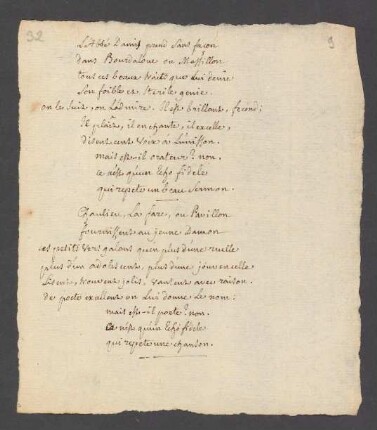 32 9
L'Abbé Damis prend sans façon
dans Bourdaloue ou Massillon
tous ces beaux traits que lui denie
Son foible et sterile genie.
on les suit, on l'admire. Il est brillant, fecond;
Il plaît, il enchante, il excelle,
disent cent voix a l'unisson.
mais est-il orateur? non.
ce n'est qu'un Echo fidele
qui repete un beau Sermon.
Chaulieu, La fare, ou Pavillon
fournissent au jeune Damon
ces petits vers galans qu'en plus d'une ruelle
plus d'un adolescent, plus d'une jouvencelle
Lisent, trouvent jolis, vantent avec raison.
de poete excellent on lui donne le nom:
mais est-il poete? non.
ce n'est qu'un Echo fidele
qui repete une chanson.